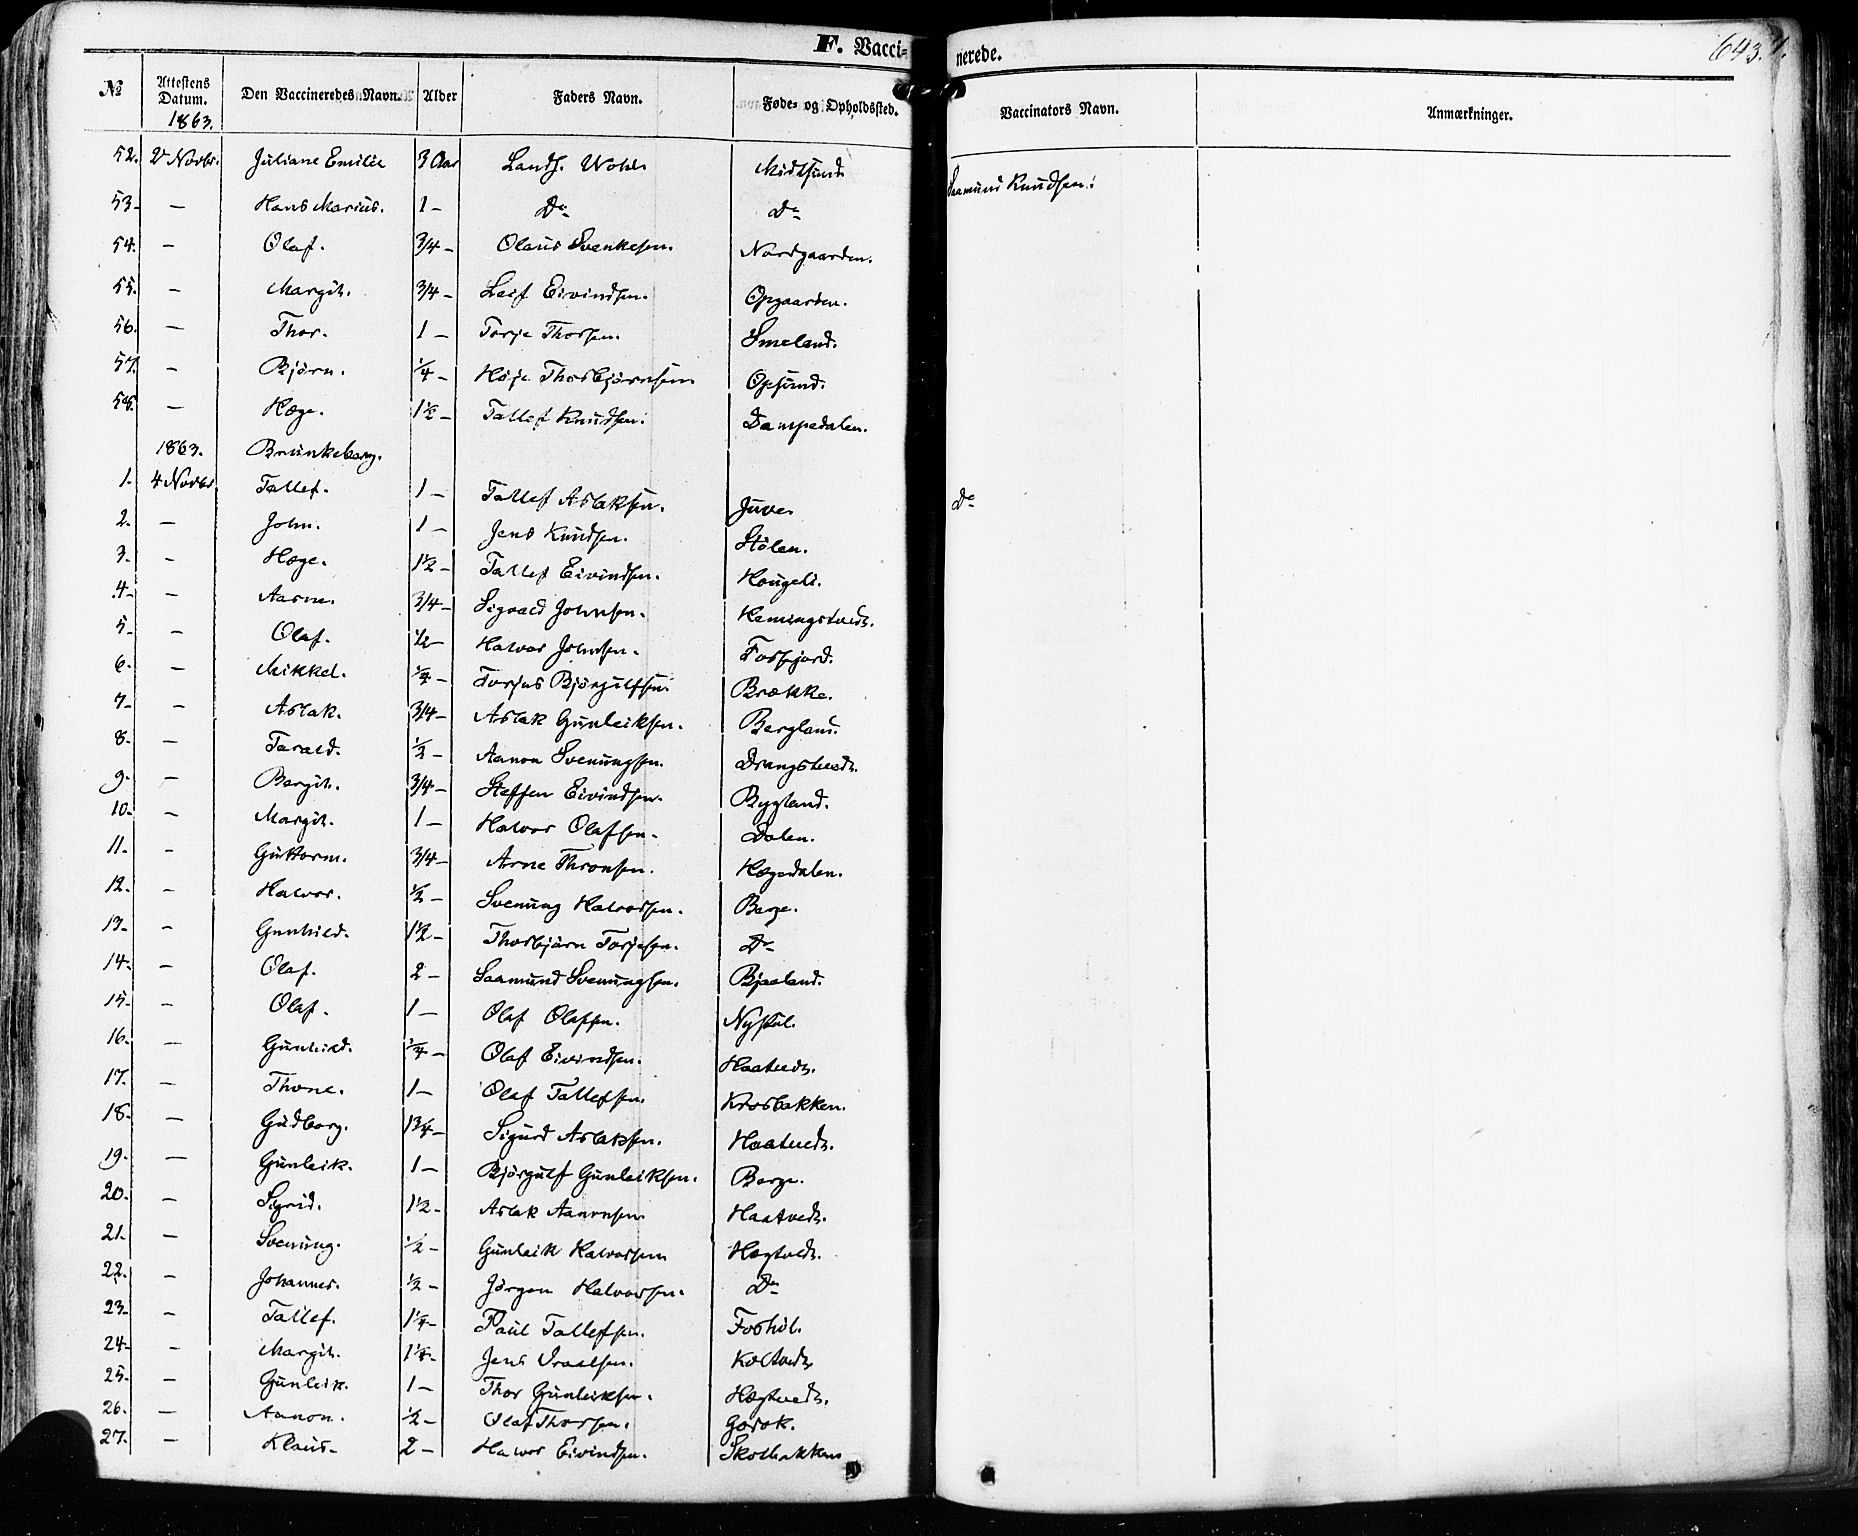 F. Vaccinerede. 643.
№ | Attestens Datum. 1863. | Den Vaccineredes Navn. | Alder | Faders Navn. | Føde- og Opholdssted. | Vaccinators Navn. | Anmærkninger.
52. 2 Novbr. Juliane Emilie 3 Aar Landh. Midtsund Saamund Knudsen.
53. — Hans Marius. 1 — Do Do
54. — Olaf. 3/4 — Olaus Svenkesen. Nordgaarden.
55. — Margit. 3/4 — Leif Eivindsen. Opgaarden.
56. — Thor. 1 — Torje Thorsen. Smeland.
57. — Bjørn. 1/4 — Høje Thorbjørnsen. Opsund.
58. — Hæge. 1 1/2 — Tallef Knudsen. Dampedalen.
1863. Brunkeberg.
1. 4 Novbr Tallef. 1 — Tallef Aslaksen. Juve. Do
2. — John. 1 — Jens Knudsen. Stølen.
3. — Hæge. 1 1/2 — Tallef Eivindsen. Haugeli.
4. — Aasne. 3/4 — Sigvald Johnsen. Hemingstvedt.
5. — Olaf. 1/2 — Halvor Johnsen. Fosfjord.
6. — Mikkel. 1/4 — Torjus Bjørgulfsen. Brække.
7. — Aslak. 3/4 — Aslak Gunleiksen. Bergland.
8. — Tarald. 1/2 — Aanon Svenungsen. Drangstvedt.
9. — Bergit. 3/4 — Steffen Eivindsen. Bygland.
10. — Margit. 1 — Halvor Olafsen. Dalen.
11. — Guttorm. 3/4 — Arne Thronsen. Hægedalen.
12. — Halvor. 1/2 — Svenung Halvorsen. Berge.
13. — Gunhild. 1 1/2 — Thorbjørn Torjesen. Do
14. — Olaf. 2 — Saamund Svenungsen. Bjaaland.
15. — Olaf. 1 — Olaf Olafsen. Nystul.
16. — Gunhild. 1/4 — Olaf Eivindsen. Haatvedt.
17. — Thone. 1 — Olaf Tallefsen. Krosbakken.
18. — Gudborg. 1 3/4 — Sigurd Aslaksen. Haatvedt.
19. — Gunleik. 1 — Bjørgulf Gunleiksen. Berge.
20. — Sigrid. 1 1/2 — Aslak Aanonsen. Haatvedt.
21. — Svenung. 1/2 — Gunleik Halvorsen Hægtvedt.
22. — Johannes. 1/2 — Jørgen Halvorsen. Do
23. — Tallef. 1 1/4 — Paul Tallefsen. Foshol.
24. — Margit. 1 1/4 — Jens Vraalsen. Koltvedt
25. — Gunleik. 1 — Thor Gunleiksen. Hægtvedt.
26. — Aanon. 1/2 — Olaf Thorsen. Gorok.
27. — Klaus. 2 — Halvor Eivindsen. Skolbakken